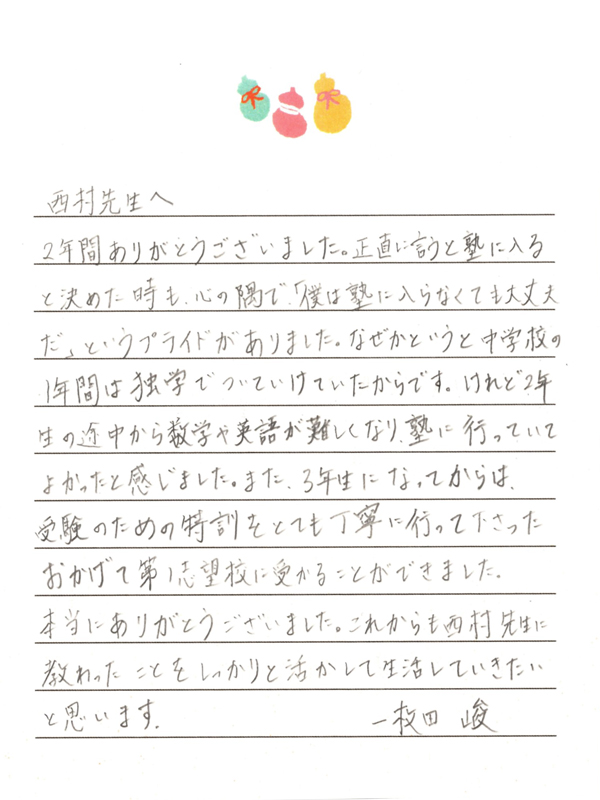 西村先生へ
2年間ありがとうございました。正直に言うと塾に入る
と決めた時も、心の隅で、「僕は塾に入らなくても大丈夫
だ」というプライドがありました。なぜかというと中学校の
1年間は独学でついていけていたからです。けれど2年
生の途中から数学や英語が難しくなり、塾に行っていて
よかったと感じました。また、3年生になってからは、
受験のための特訓をとても丁寧に行って下さった
おかげで第1志望校に受かることができました。
本当にありがとうございました。これからも西村先生に
教わったことをしっかりと活かして生活していきたい
と思います。 一枚田 峻